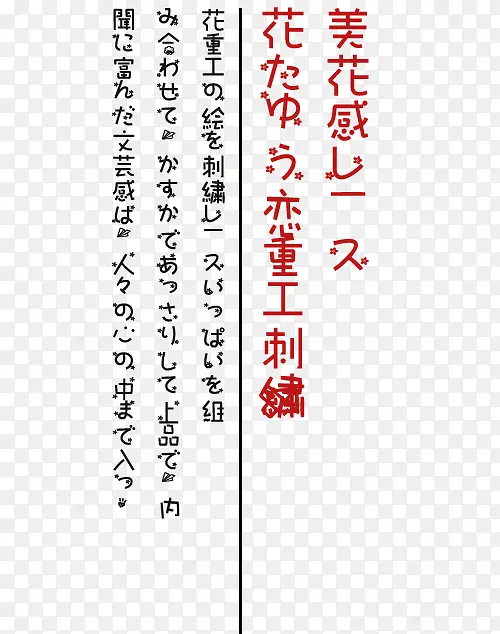 美花感レース
花たゆう恋重工刺繍
花重工の絵を刺繍レースいっぱいを组
み合わせて。かすかであっさりして上品で。内
聞に富んだ文芸感ば。人々の心の中まで入っ。